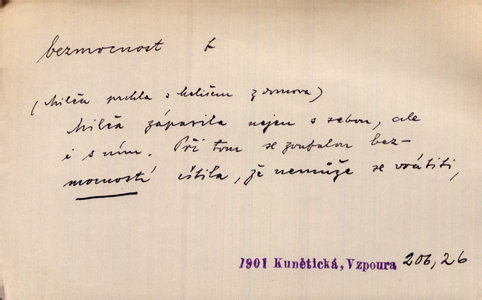 bezmocnost f
(Milča prchla s Kelišem z domova)
Milča zápasila nejen s sebou, ale
i s ním. Při tom se zoufalou bez-
mocností cítila, že nemůže se vrátiti,
1901 Kunětická, Vzpoura 206,26